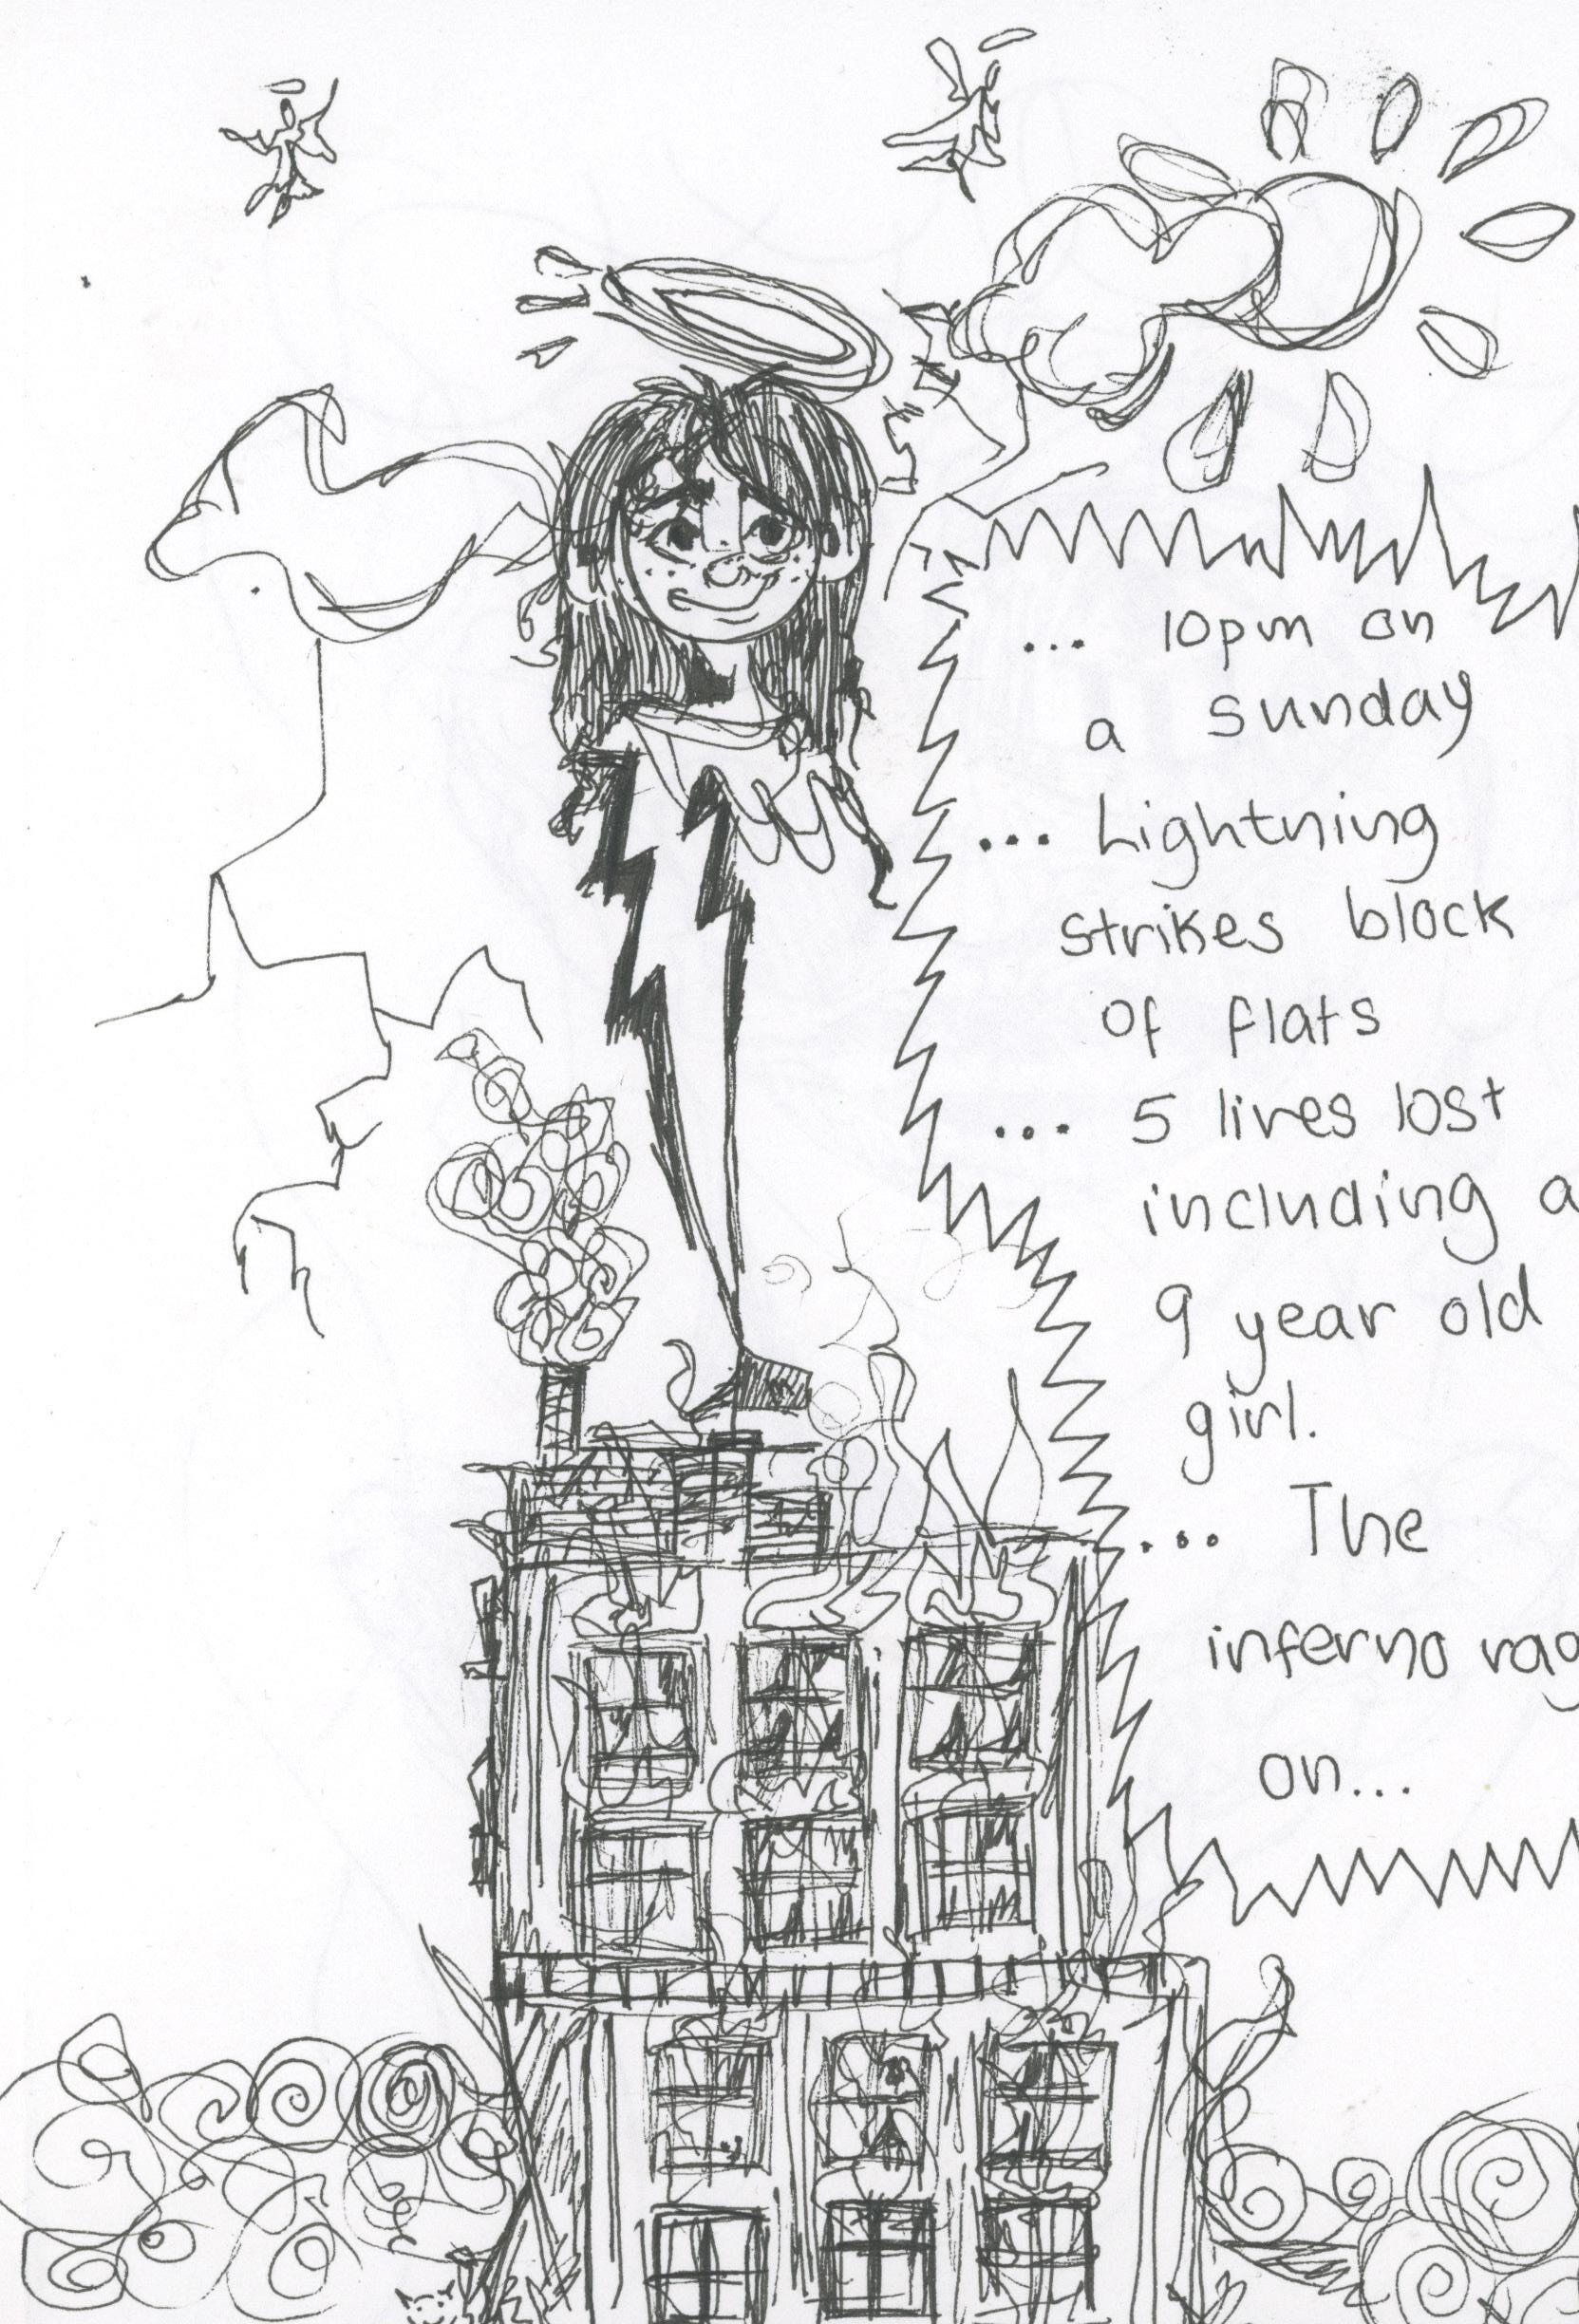 ... 10pm on
a sunday
... Lightning
strikes block
of flats
... 5 lives lost
including a
9 year old
girl.
... The
inferno rag
on...